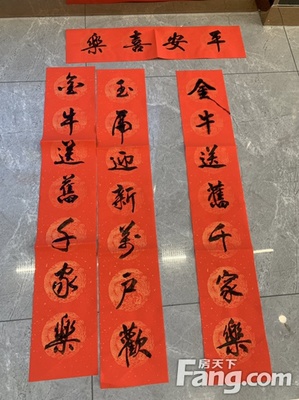 樂喜安平
金牛送舊千家樂
玉虎迎新萬戶歡
金牛送舊千家樂
房天下
Fang.com